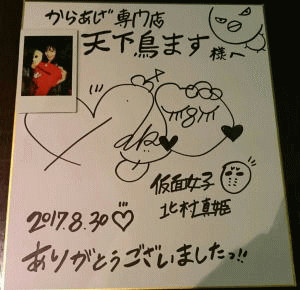 からあげ専門店
天下鳥ます様へ
仮面女子
北村真姫
2017.8.30♡
ありがとうございましたっ!!